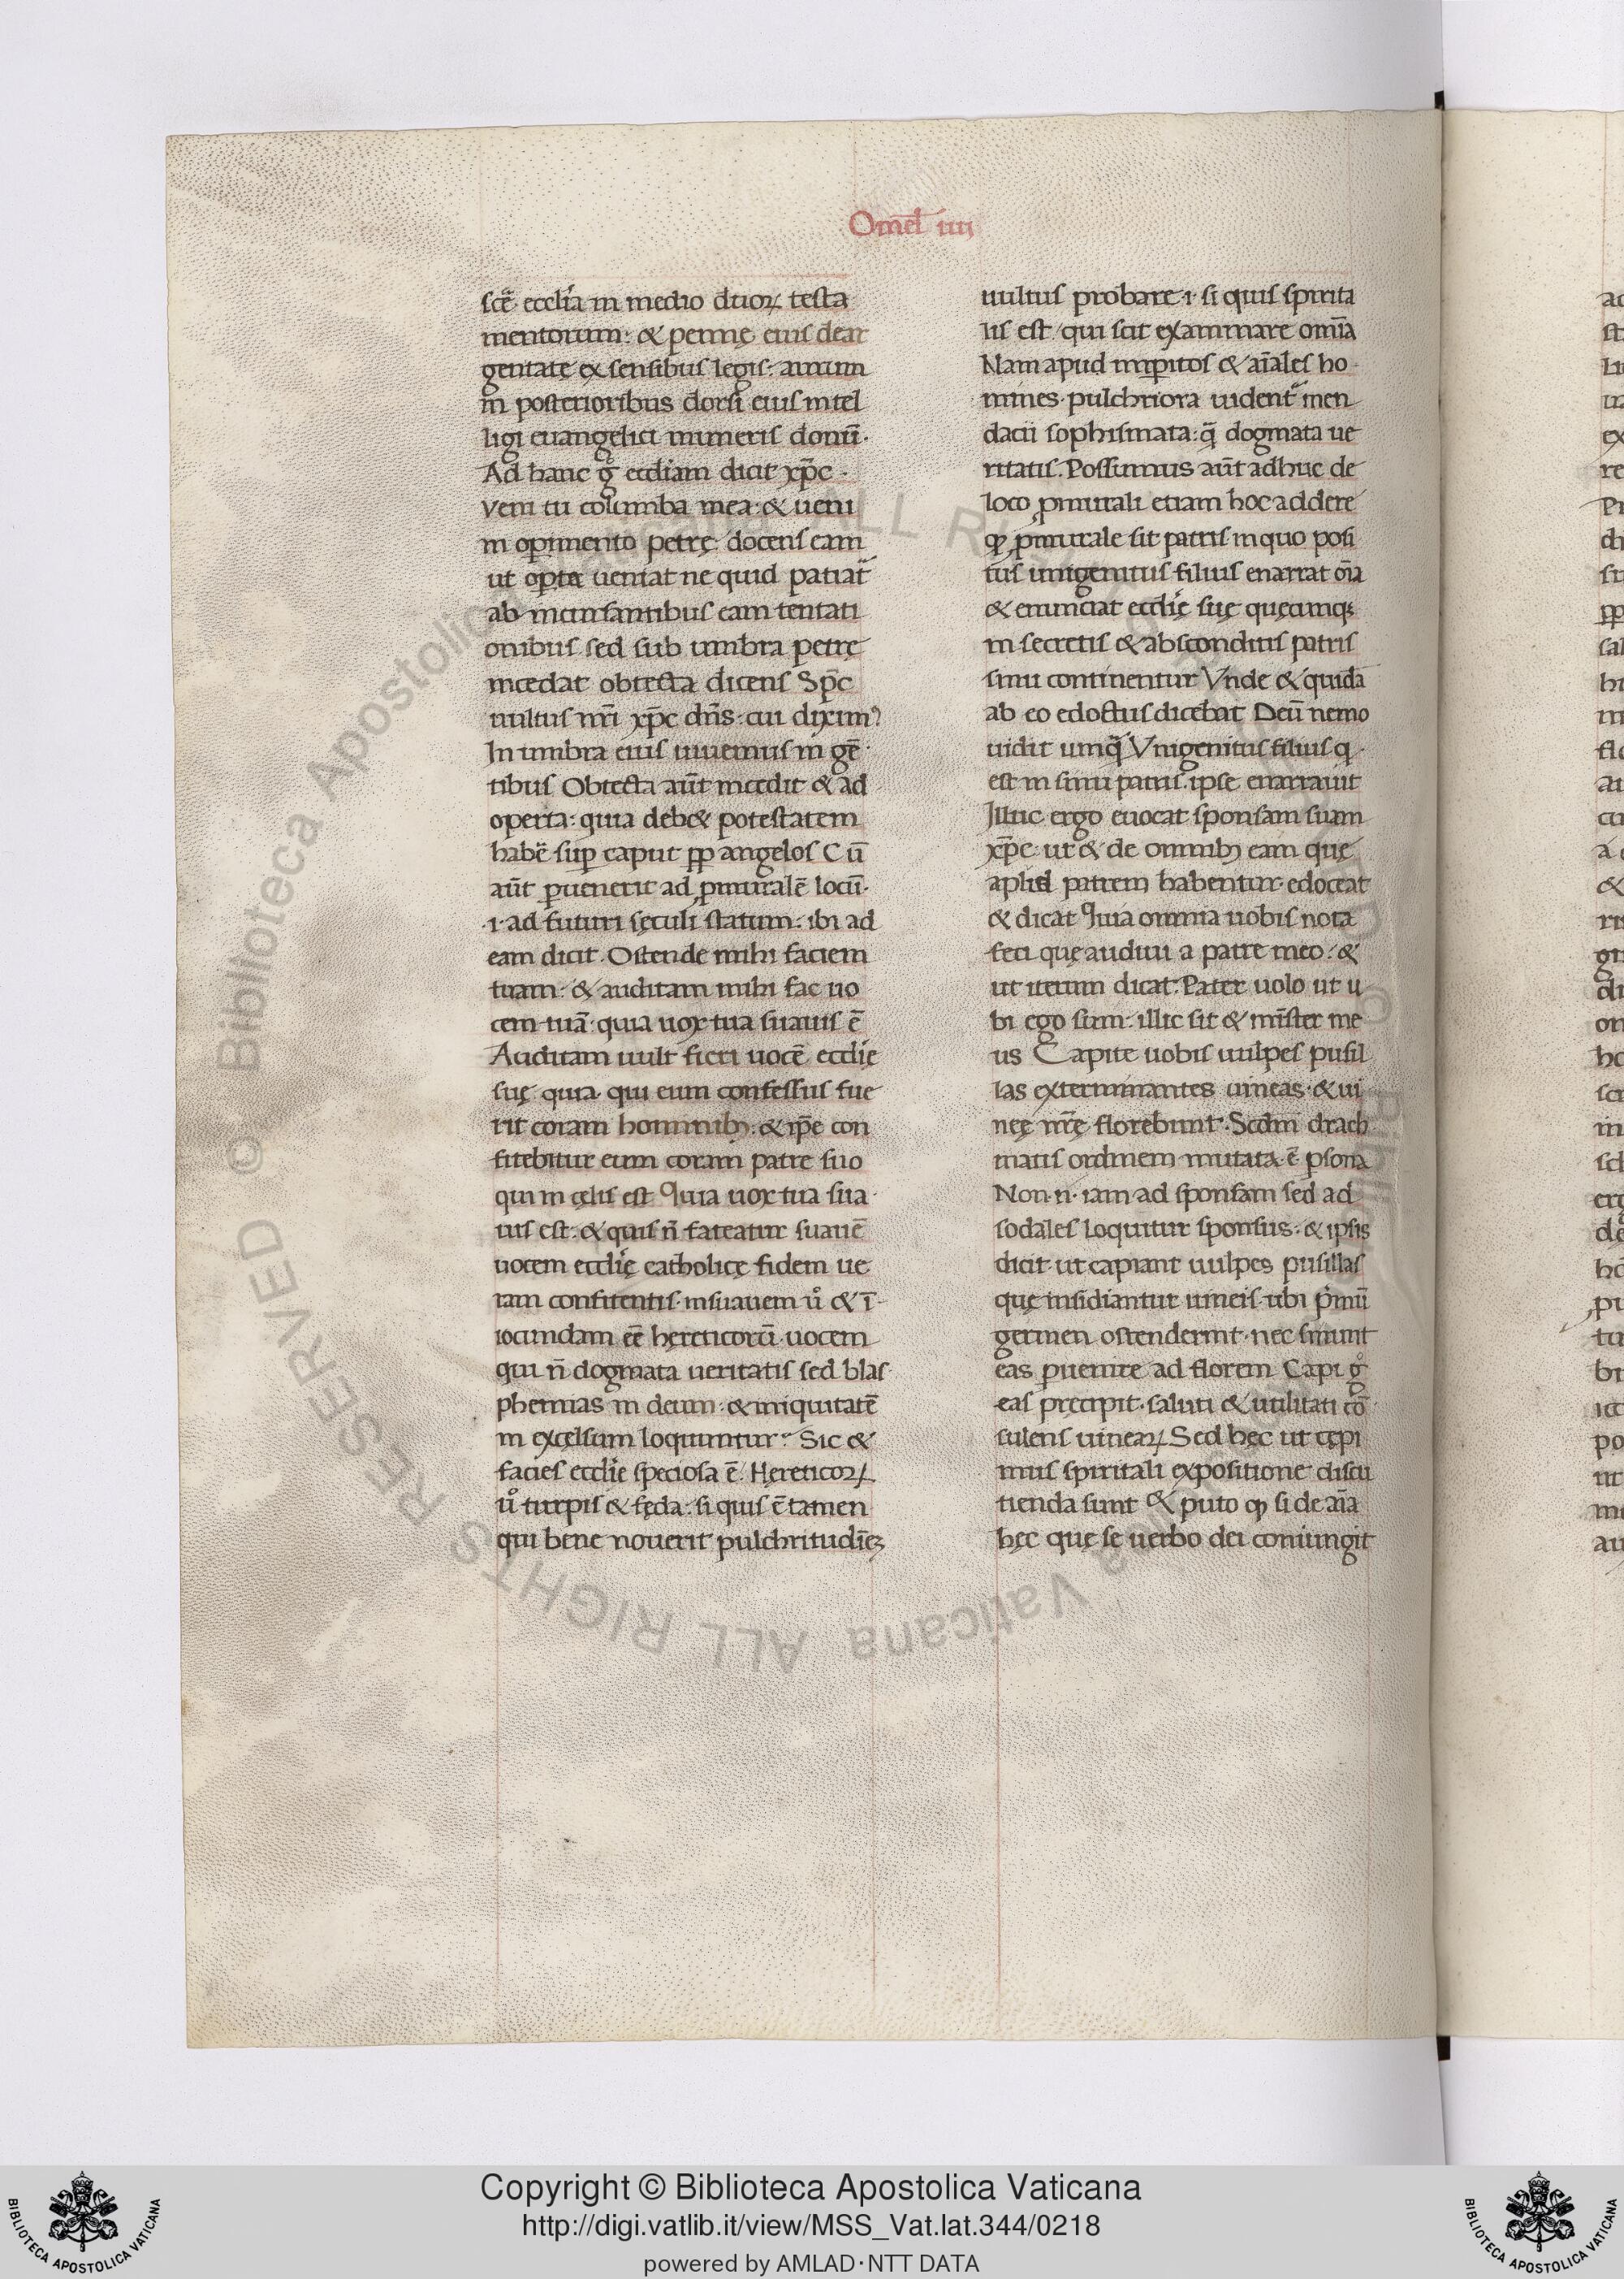 Omel̄ iiii
scē eccl̄ia in medio duoꝝ testa
mentorum: & pennę eius dear
gentate ex sensibus legis: aurum
in posterioribus dorsi eius intel
ligi euangelici muneris donū.
Ad hanc g̊ eccliam dicit xp̄c.
Veni tu columba mea: & ueni
in operimento petrę docens eam
ut operta ueniat ne quid patiat᷑
ab incursantibus eam tentati
onibus sed sub umbra petrę
incedat obtecta dicens Sp̄c
uultus nr̄i xp̄c dn̄s. cui diximꝰ
In umbra eius uiuemus in gē
tibus Obtecta aūt incedit & ad
operta: quia deb& potestatem
habē suꝑ caput ꝓꝑ angelos Cū
aūt ꝑuenerit ad ꝓmuralē locū.
.i. ad futuri sęculi statum: ibi ad
eam dicit. Ostende mihi faciem
tuam: & auditam mihi fac uo
cem tuā. quia uox tua suauis ē
Auditam uult fieri uocē ecclię
suę quia qui eum confessus fue
rit coram hominibꝫ: & ip̄e con
fitebitur eum coram patre suo
qui in cęlis est Quia uox tua sua
uis est: & quis n̄ fateatur suauē
uocem ecclię catholicę fidem ue
ram confitentis. insuauem ů & ī
iocundam eē hęreticorū uocem
qui n̄ dogmata ueritatis sed blas
phemias in deum: & iniquitatē
in excelsum loquuntur. Sic &
facies ecclie speciosa ē. Hereticoꝝ
ů turpis & fęda: si quis ē tamen
qui bene nouerit pulchritudīeꝫ
uultus probare .i. si quis spirita
lis est qui scit examinare omīa
Nam apud imꝑitos & aīales ho
mines pulchriora uident᷑ men
dacii sophismata: q̄ dogmata ue
ritatis. Possumus aūt adhuc de
loco ꝓmurali etiam hoc addere
ꝙ ꝓmurale sit patris in quo posi
tus unigenitus filius enarrat oīa
& enunciat ecclię suę quęcunqꝫ
in secretis & absconditis patris
sinu continentur Vnde & quidā
ab eo edoctus dicebat Deū nemo
uidit unq̄ Vnigenitus filius q
est in sinu patris. ipse enarrauit
Illuc ergo euocat sponsam suam
xp̄c ut & de omnibꝫ eam quę
apud patrem habentur edoceat
& dicat Quia omnia uobis nota
feci quę audiui a patre meo: &
ut iterum dicat: Pater uolo ut u
bi ego sum: illic sit & mīster me
us Capite uobis uulpes pusil
las exterminantes uineas: & ui
neę nr̄ę florebunt. Scdm̄ drach
matis ordinem mutata ē ꝑsona
Non .n. iam ad sponsam sed ad
sodales loquitur sponsus: & ipsis
dicit ut capiant uulpes pusillas
quę insidiantur uineis. ubi primū
germen ostenderint. nec sinunt
eas ꝑuenire ad florem Capi g̊
eas pręcipit. saluti & utilitati cō
sulens uineaꝝ Sed hęc ut cępi
mus spiritali expositione discu
tienda sunt & puto ꝙ si de aīa
hęc quę se uerbo dei coniungit
Copyright © Biblioteca Apostolica Vaticana
http://digi.vatlib.it/view/MSS_Vat.lat.344/0218
powered by AMLAD · NTT DATA